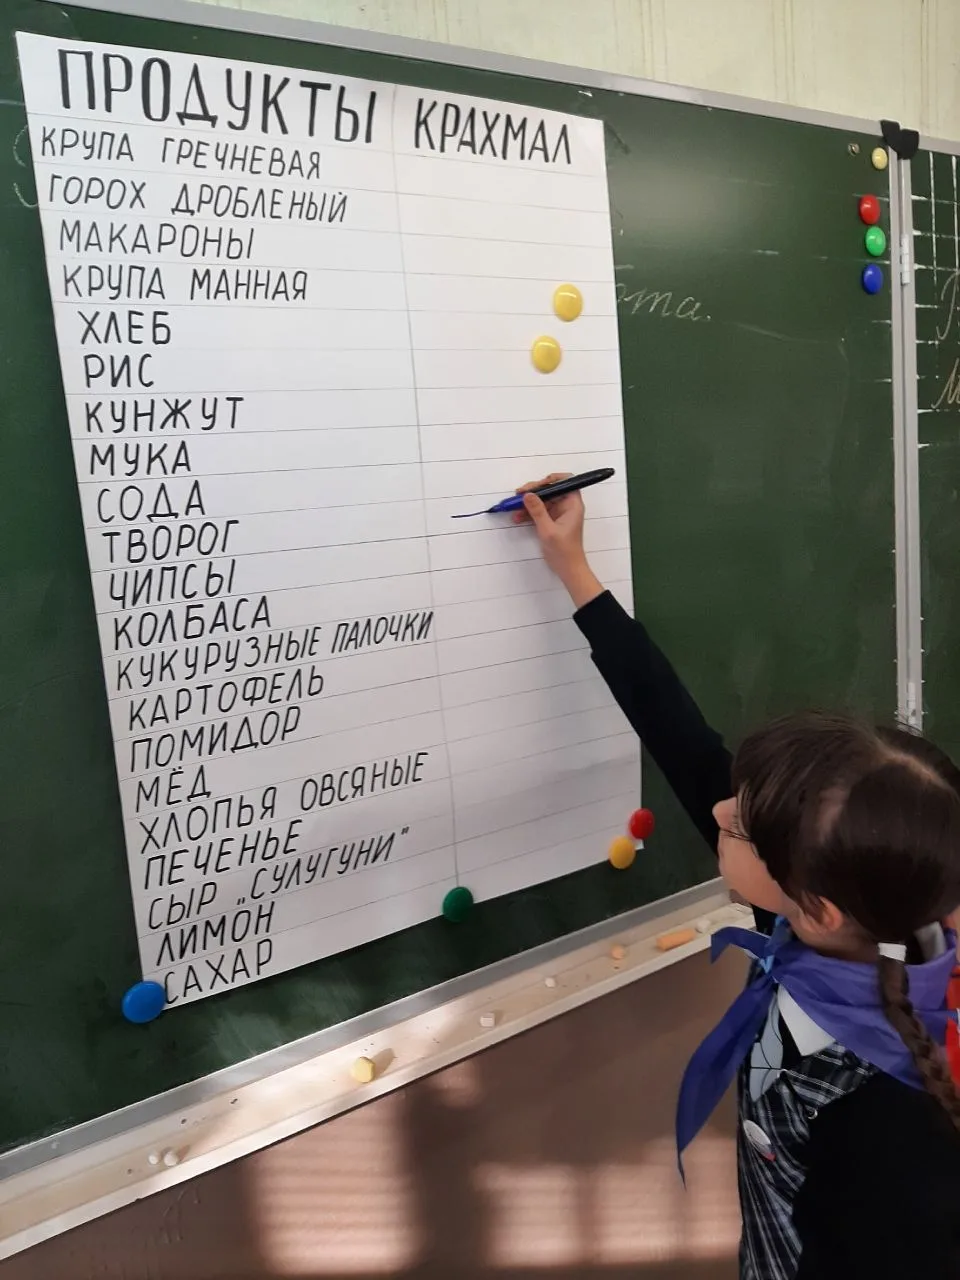 ПРОДУКТЫ КРАХМАЛ
КРУПА ГРЕЧНЕВАЯ
ГОРОХ ДРОБЛЕНЫЙ
МАКАРОНЫ
КРУПА МАННАЯ
ХЛЕБ
РИС
КУНЖУТ
МУКА
СОДА
ТВОРОГ
ЧИПСЫ
КОЛБАСА
КУКУРУЗНЫЕ ПАЛОЧКИ
КАРТОФЕЛЬ
ПОМИДОР
МЁД
ХЛОПЬЯ ОВСЯНЫЕ
ПЕЧЕНЬЕ
СЫР „СУЛУГУНИ"
ЛИМОН
САХАР